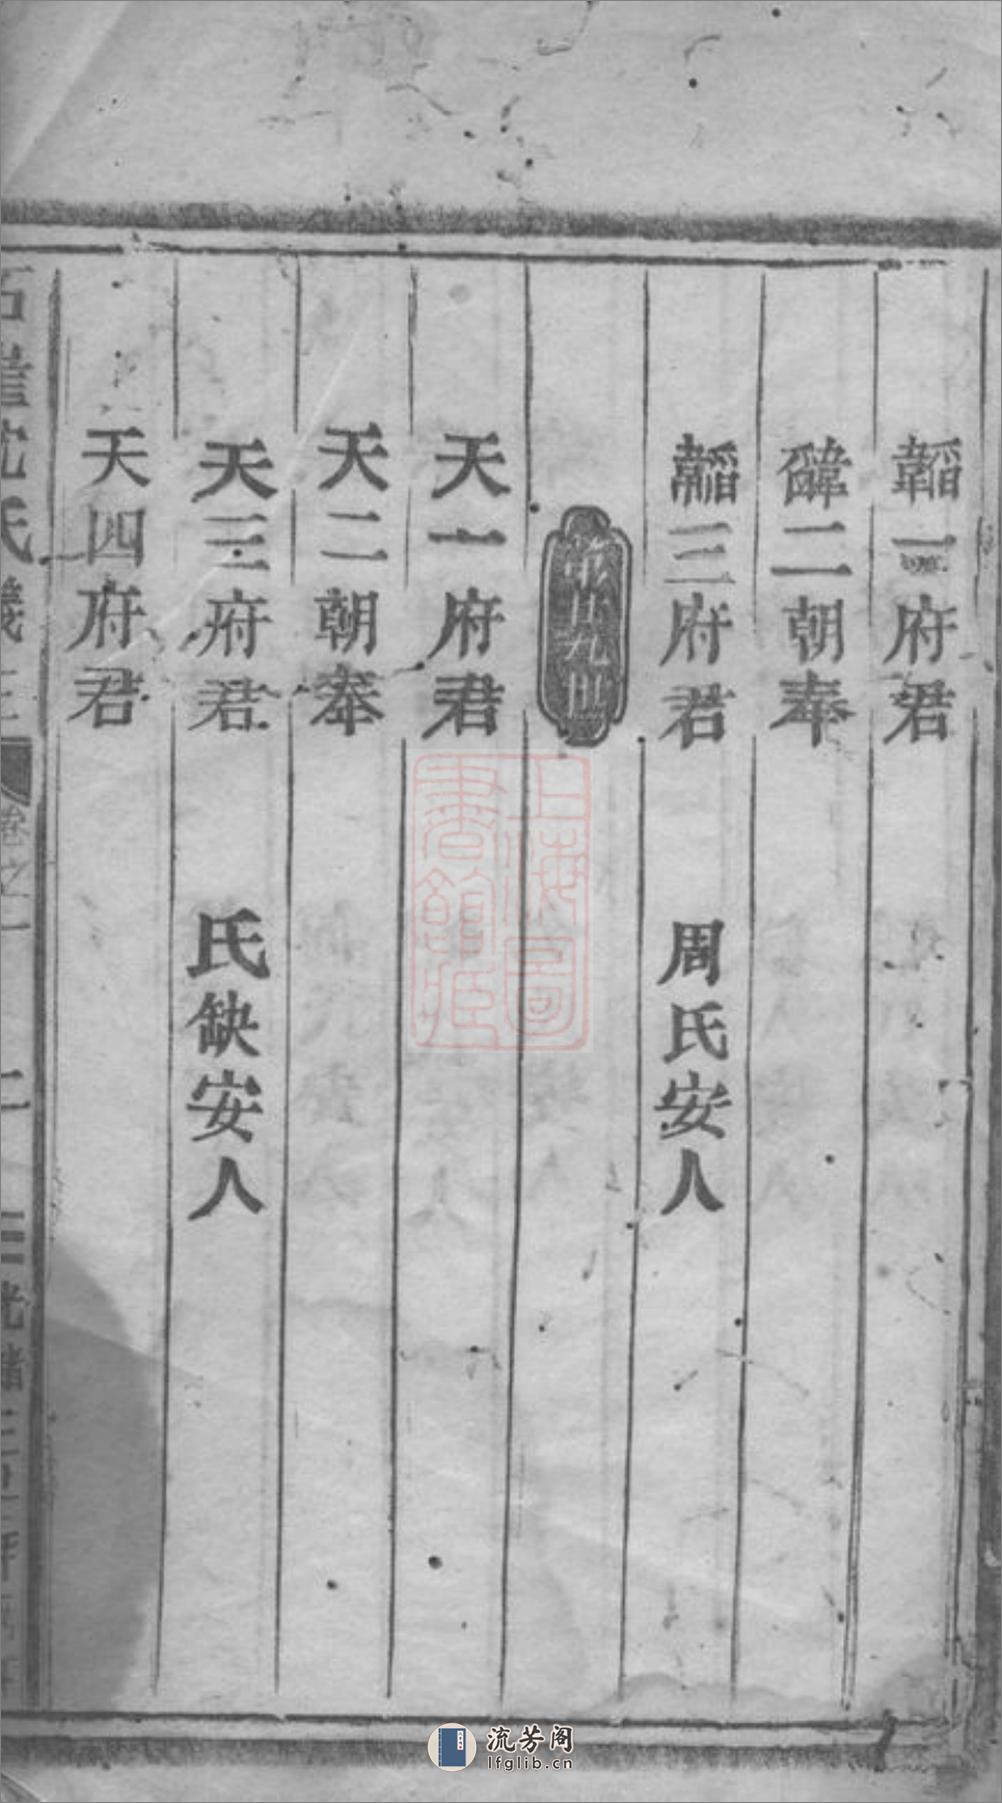 韜一府君
二朝奉
韜三府君 周氏安人
第廿九世
天一府君
天二朝奉
天三府君 氏缺安人
天四府君
沈氏
卷之一
二
光緒三
上海圖
書館藏
流芳阁
lfglib.cn